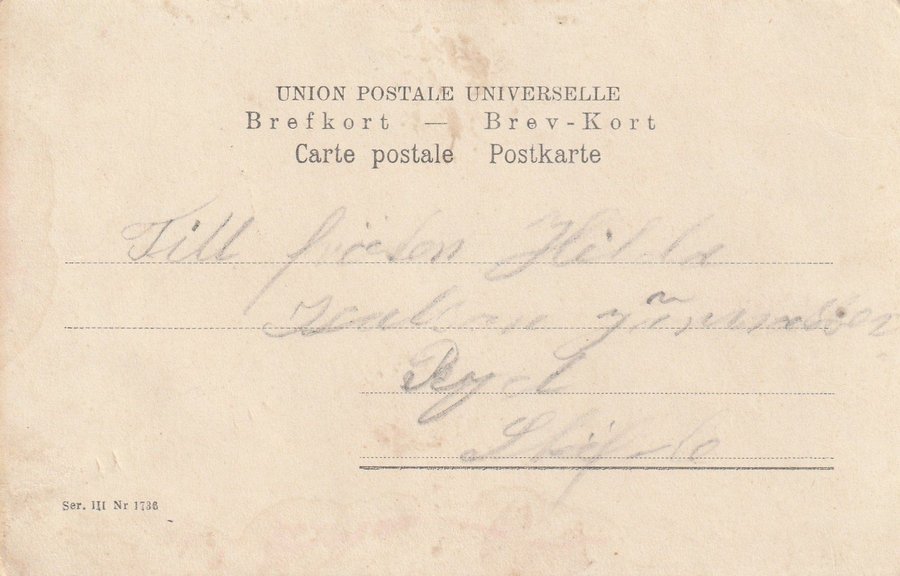 UNION POSTALE UNIVERSELLE
Brefkort — Brev-Kort
Carte postale Postkarte
Till fröken Hilda
Ryd
Sköfde
Ser. III Nr 1736